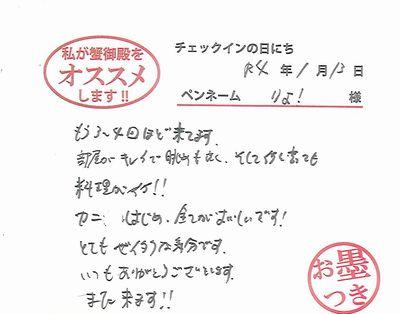 私が蟹御殿を
オススメ
します!!
チェックインの日にち
R4 年 1 月 13 日
ペンネーム りょ! 様
もう3~4回ほど来てます。
部屋がキレイで眺めも良く、そして何と言っても
料理がイイ!!
カニはじめ、全てがおいしいです!
とてもぜいたくな気分です。
いつもありがとうございます。
また来ます!!
お墨
つき